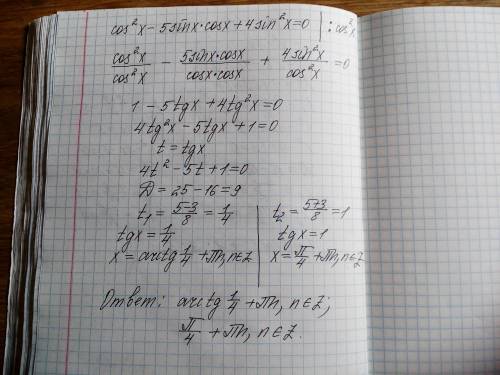 cos²x - 5sinx·cosx + 4sin²x = 0 | : cos²x
cos²x/cos²x - 5sinx·cosx/cosx·cosx + 4sin²x/cos²x = 0
1 - 5tgx + 4tg²x = 0
4tg²x - 5tgx + 1 = 0
t = tgx
4t² - 5t + 1 = 0
Д = 25 - 16 = 9
t₁ = 5-3/8 = 1/4 | t₂ = 5+3/8 = 1
tgx = 1/4 | tgx = 1
x = arctg 1/4 + πn, n∈Z | x = π/4 + πn, n∈Z
Ответ: arctg 1/4 + πn, n∈Z;
π/4 + πn, n∈Z.